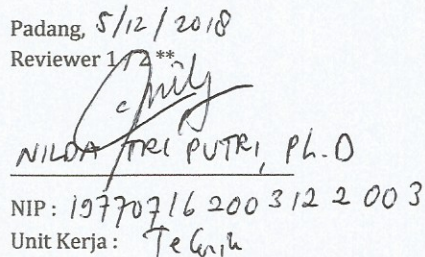 Padang, 5/12/2018
Reviewer 1 / 2 **
NILDA TRI PUTRI, Ph.D
NIP : 19770716 200312 2 003
Unit Kerja : Teknik